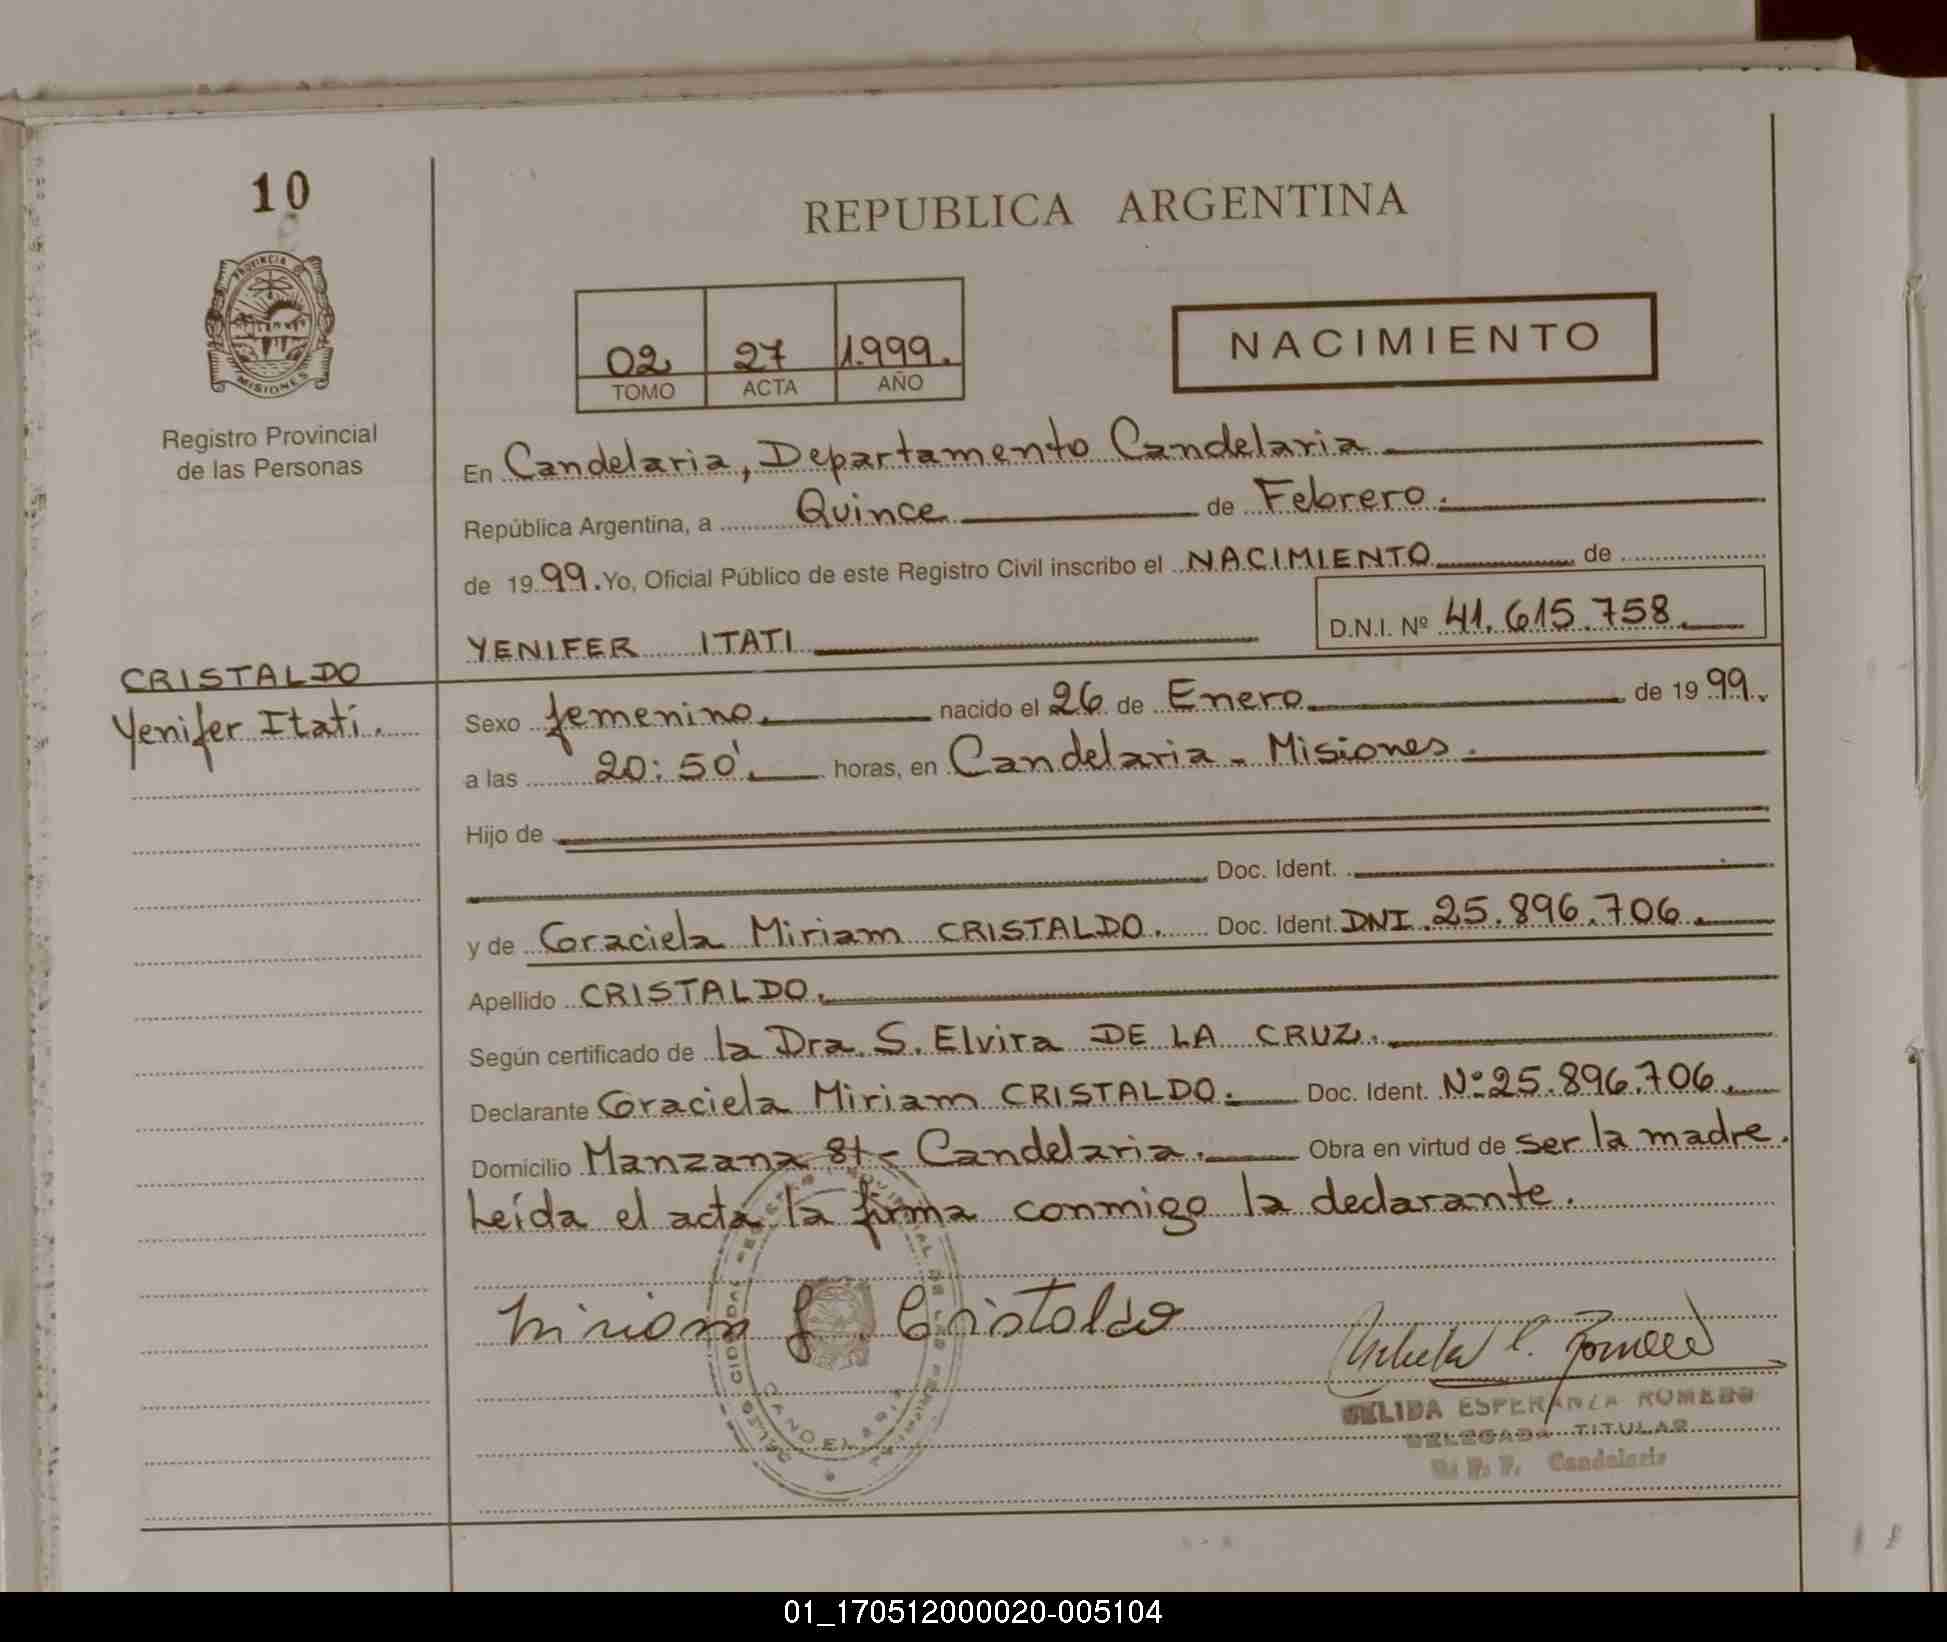 10
REPUBLICA ARGENTINA
PROVINCIA DE
MISIONES
Registro Provincial
de las Personas
02 27 1.999.
TOMO ACTA AÑO
NACIMIENTO
En Candelaria, Departamento Candelaria
República Argentina, a Quince de Febrero.
de 1999. Yo, Oficial Público de este Registro Civil inscribo el NACIMIENTO de
YENIFER ITATI D.N.I. Nº 41.615.758.
CRISTALDO
Yenifer Itatí.
Sexo femenino. nacido el 26 de Enero de 1999.
a las 20:50'. horas, en Candelaria - Misiones.
Hijo de
Doc. Ident.
y de Graciela Miriam CRISTALDO. Doc. Ident. DNI. 25.896.706.
Apellido CRISTALDO.
Según certificado de la Dra. S. Elvira DE LA CRUZ.
Declarante Graciela Miriam CRISTALDO. Doc. Ident. Nº 25.896.706.
Domicilio Manzana 8 - Candelaria. Obra en virtud de ser la madre.
Leída el acta la firma conmigo la declarante.
Miriam G. Cristaldo
CANDELARIA
DELIDA ESPERANZA ROMERO
DELEGADA TITULAR
R. P. P. Candelaria
01_170512000020-005104